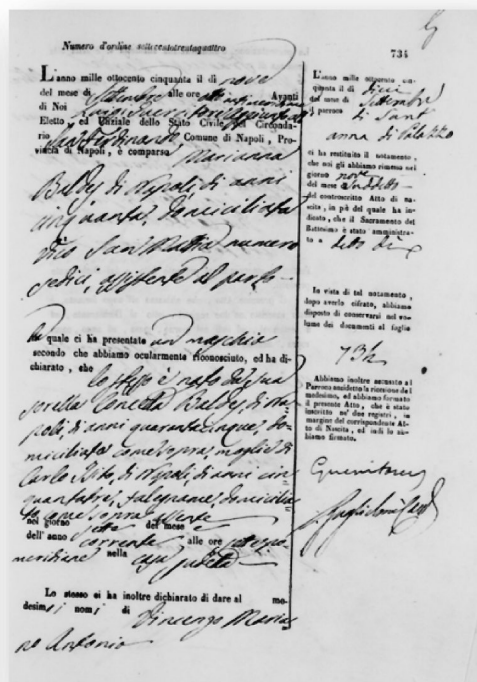 Numero d'ordine settecentotrentaquattro
734
L'anno mille ottocento cinquanta il dì nove
del mese di Settembre alle ore Avanti
di Noi
Eletto, ed Uffiziale dello Stato Civile del Circonda-
rio San Ferdinando Comune di Napoli, Pro-
vincia di Napoli, è comparsa Marianna
Baldy di Napoli di anni
cinquanta, domiciliata
Vico San Mattia numero
sedici, assistente al parto
la quale ci ha presentato un maschio
secondo che abbiamo ocularmente riconosciuto, ed ha di-
chiarato, che
lo stesso è nato da sua
sorella Concetta Baldy di Na-
poli, di anni quarantacinque, do-
miciliata come sopra, moglie di
Carlo di Napoli, di anni cin-
quantatre, falegname, domicilia-
to come sopra
nel giorno sette del mese e
dell'anno corrente alle ore
meridiane nella casa
Lo stesso ci ha inoltre dichiarato di dare al me-
desimo i nomi di Vincenzo Maria-
no Antonio
L'anno mille ottocento cin-
quanta il dì dieci
del mese di Settembre
il parroco di Sant
anna di Palazzo
ci ha restituito il notamento,
che noi gli abbiamo rimesso nel
giorno nove
del mese suddetto
del controscritto Atto di na-
scita, in piè del quale ha in-
dicato, che il Sacramento del
Battesimo è stato amministra-
to a detto dì
In vista di tal notamento,
dopo averlo cifrato, abbiamo
disposto di conservarsi nel vo-
lume dei documenti al foglio
734
Abbiamo inoltre accusato al
Parroco suddetto la ricezione del
medesimo, ed abbiamo formato
il presente Atto, che è stato
inscritto ne' due registri, in
margine del corrispondente At-
to di Nascita, ed indi lo ab-
biamo firmato.